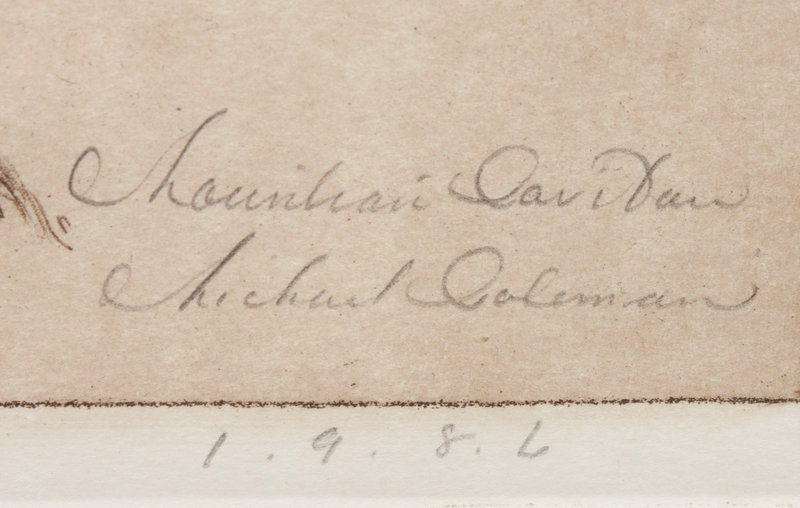 Mountain Caribou
Michael Coleman
1.9.8.6